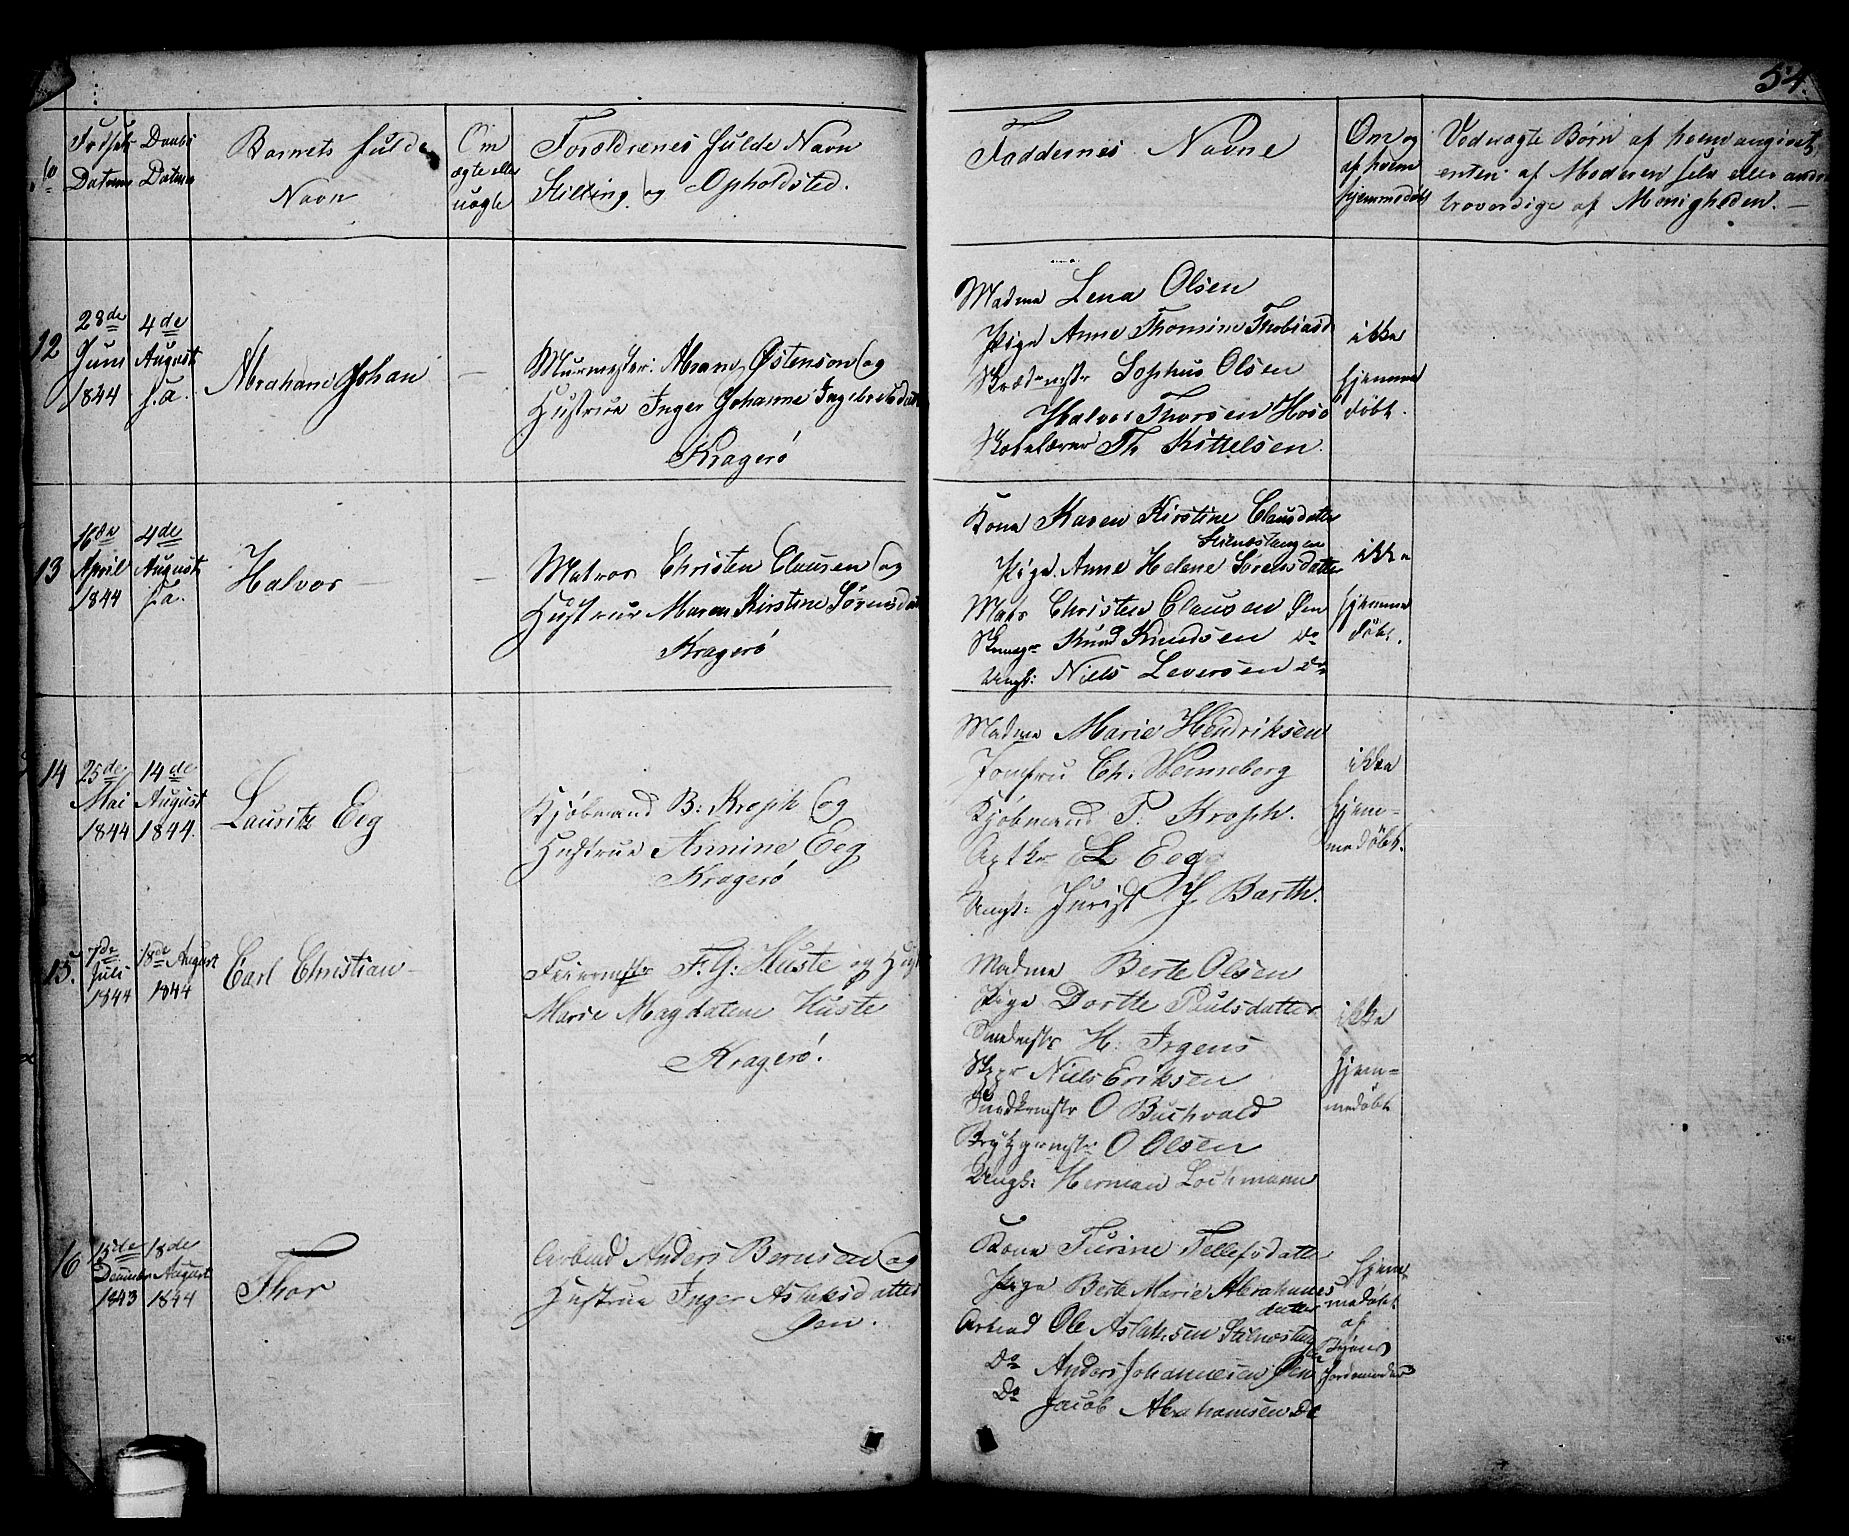 54.
No
Fødsels Daabs
Datum Datum
Barnets fulde
Navn
Om
ægte eller
uægte
Forældrenes fulde Navn
Stilling og Opholdsted.
Faddernes Navne
Om og
af hvem
hjemmedøbt
Ved uægte Børn af hvem angivet,
enten af Moderen selv eller andre
troværdige af Menigheden. —
12
28de
Juni
1844
4de
August
s.a.
Abraham Johan
—
Murmester: Abram Østenson og
Hustrue Inger Johanne Ingebretsdatter
Kragerö
Madme Lena Olsen
Pige Anne Thomine Thobiasd
Skrædermstr Sophus Olsen
Halvor Thorsen
Skolelærer Th Kittelsen.
ikke
hjemme
døbt.
13
16de
April
1844
4de
August
s.a.
Halvor —
—
Matros Christen Clausen og
Hustrue Maren Kirstine Sørensdat
Kragerö
Kone Karen Kirstine Clausdatter
Stilnestangen
Pige Anne Helene Sorensdatter
Mats Christen Clausen Øen
Knud Knudsen do
Ungk: Niels Leversen do
ikke
hjemme
døbt.
14
25de
Mai
1844
14de
August
1844.
Lauritz Eeg
Kjøbmand B: Kroph og
Hustrue Annine Eeg
Kragerö
Madme Marie Hendriksen
Jomfru Ch: Henneberg
Kjøbmand P. Kroph.
Aptkr L Eeg
Ungk: Jurist J Barth.
ikke
hjem-
medøbt.
15.
7de
Juli
1844
18de August
1844
Carl Christian —
Feiermstr F. G: Huste og Hust
Marie Magdalene Huste
Kragerö.
Madme Berte Olsen
Pige Dorthe Paulsdatter
Smedmstr H. Irgens
Skppr Niels Eriksen
Snedkrmstr O Buchvald
O Olsen
Ungk: Herman Lochmann
ikke
hjem-
medøbt
16
15de
December
1843
18de
August
1844
Thor
Arbeid Anders Bernsen og
Hustrue Inger Aslaksdatter
Øen.
Kone Turine Tellefsdatter
Pige Berte Marie Abrahams
datter
Arbeid Ole Aslaksen Stilnestang
en
Do Anders Johannesen Øen
Do Jacob Abrahamsen Do
hjem
medøbt
af
Jordemoder